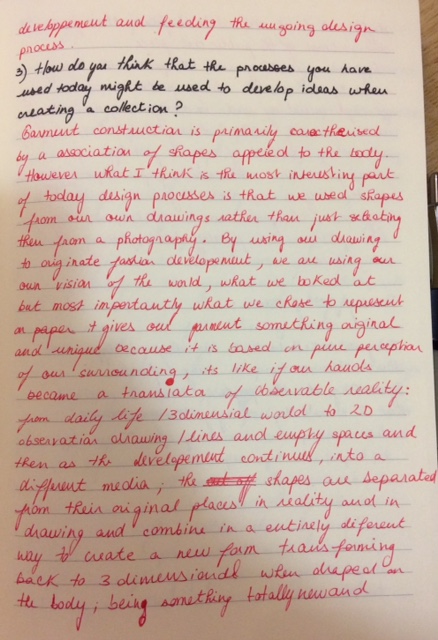 developpement and feeding the ungoing design
process.
3) How do you think that the processes you have
used today might be used to develop ideas when
creating a collection?
Garment construction is primarily caractherised
by a association of shapes applied to the body.
However what I think is the most interesting part
of today design processes is that we used shapes
from our own drawings rather than just selecting
then from a photography. By using our drawing
to originate fashion developement, we are using our
own vision of the world, what we looked at
but most importantly what we chose to represent
on paper it gives our garment something original
and unique because it is based on pure perception
of our surrounding, its like if our hands
became a translator of observable reality:
from daily life / 3 dimensial world to 2D
observation drawing / lines and empty spaces and
then as the developement continues, into a
different media; the shapes are separated
from their original places in reality and in
drawing and combine in a entirely diferent
way to create a new form transforming
back to 3 dimensionals when draped on
the body; being something totally new and